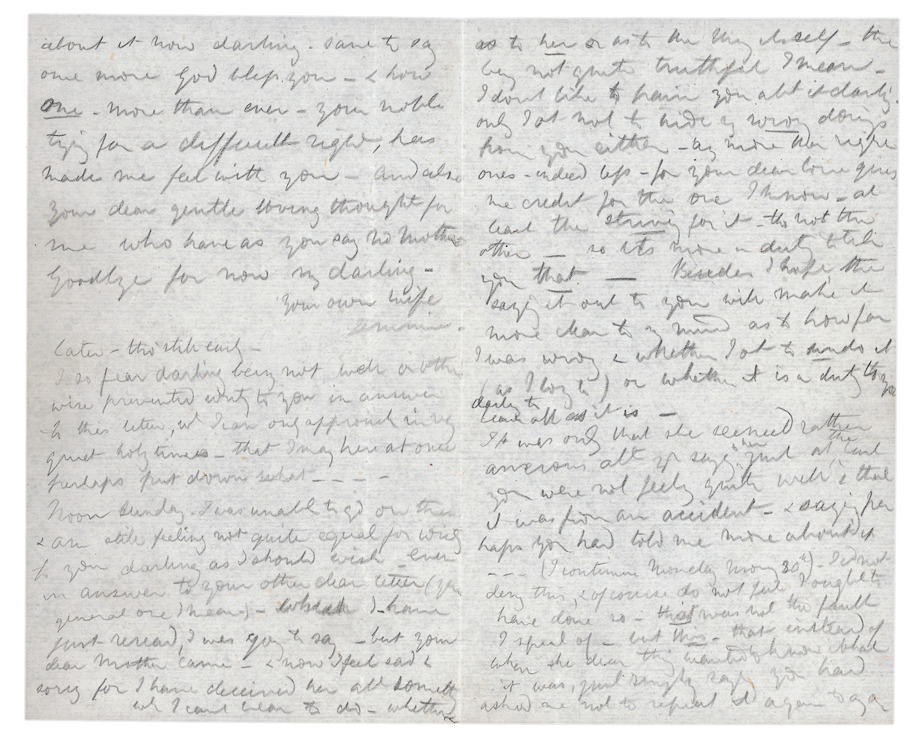 about it now darling. save to say
one more God bless you – & how
one – more than ever – your noble
trying for a difficult right, has
made me feel with you – and also
your dear gentle loving thought for
me who have as you say no Mother
Goodbye for now my darling –
Your own wife
Later – tho' still early –
I so fear darling being not well or other
wise prevented to you in answer
to this letter, wh I can only approach in my
quiet holy times – that I may here at once
perhaps put down what – – – –
Noon Sunday. I was unable to go on then
& am still feeling not quite equal for
to you darling as I should wish – even
in answer to your other dear letter (yr
general one I mean) – which I have
just reread, I was going to say – but your
dear Mother came – & now I feel sad &
sorry for I have deceived her abt
wh I can't bear to do – whether
as to her or as to the thing itself – the
being not quite truthful I mean –
I don't like to pain you abt it darling
only I ot not to hide my wrong doings
from you either – any more than right
ones – indeed less – for your dear love gives
me credit for the one I know – at
least the striving for it – tho not the
other – so it's more a duty to tell
you that – Besides I hope the
saying it out to you will make it
more clear to my mind as to how far
I was wrong & whether I ot to undo it
(as I long to) or whether it is a duty to you
darling to
leave all as it is –
It was only that she seemed rather
anxious abt yr saying just at the last
you were not feeling quite well & that
it was from an accident – & saying per
haps you had told me more about it
– – – (I continue Monday morng 30th). I did not
deny this, & of course do not feel I ought to
have done so – that was not the fault
I speak of – but this – that instead of
when she dear thing wanted to know what
it was, just simply saying you had
asked me not to repeat it again